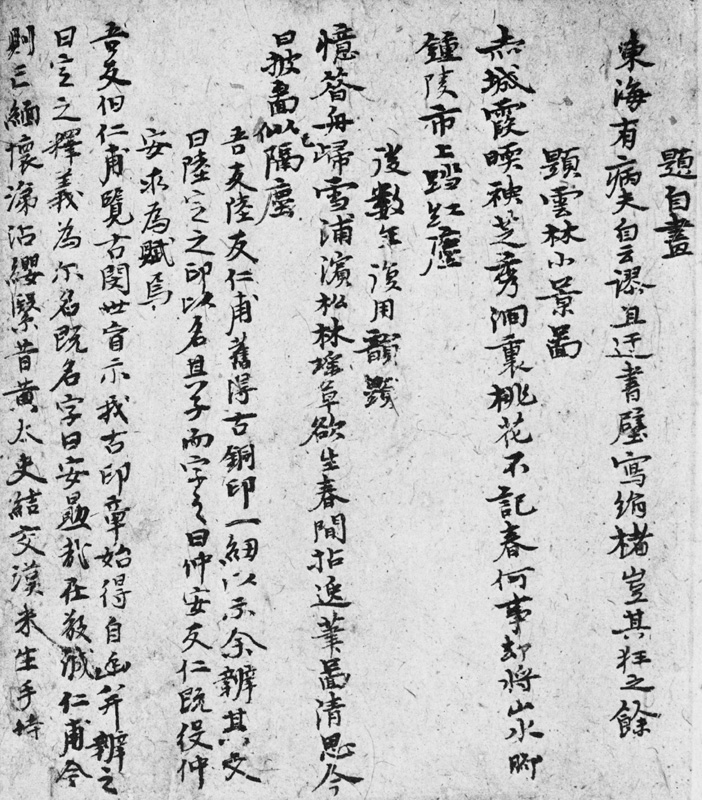 題自畫
東海有病夫自云謬且迂書壁寫絹楮豈其狂之餘
題雲林小景圖
赤城霞暎秧芝秀澗裏桃花不記春何事却將山水脚
鍾陵市上踏紅塵
後數年復用韻題
憶昔舟歸雪浦濱松林瑤草欲生春閒拈逸筆圖清思今
日披圖似隔塵
吾友陸友仁甫舊得古銅印一紐以示余辨其文
曰陸定之印以名其子而字之曰仲安友仁既役仲
安求為賦焉
吾友伯仁甫覽古閱世首示我古印章始得自幽并辨之
曰定之釋義為尔名既名字曰安勗哉在敬誠仁甫今
則已緬懷涕沾纓緊昔黃太史結交漢米生手持